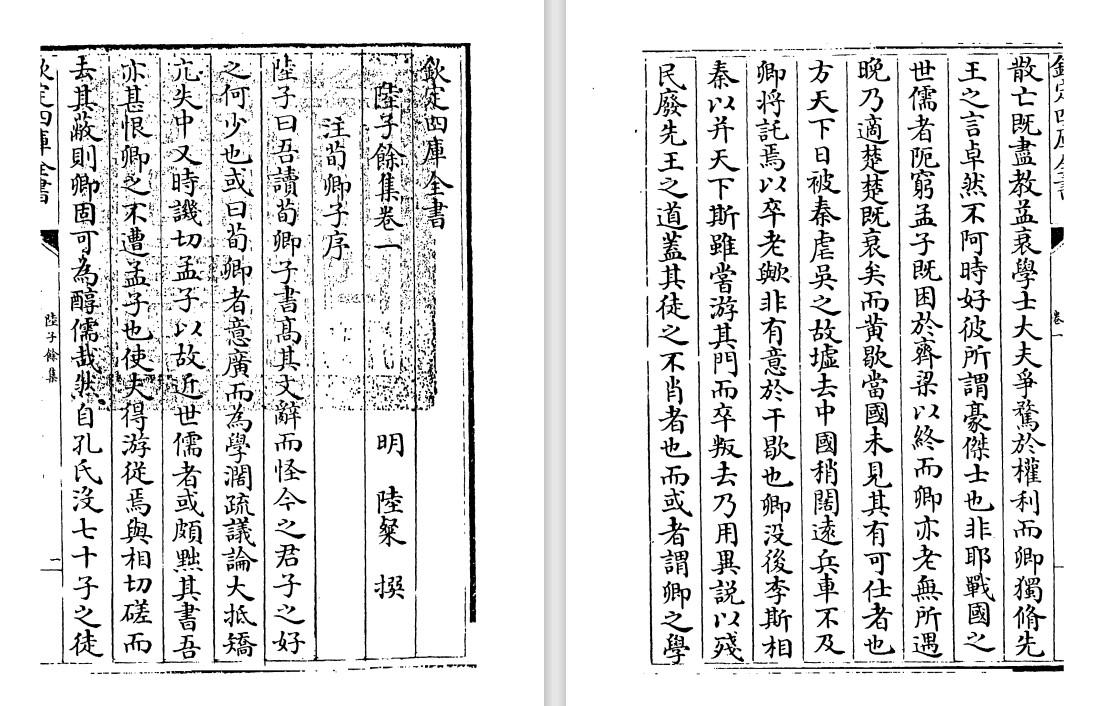 欽定四庫全書
陸子餘集卷一
明 陸粲 撰
注荀卿子序
陸子曰吾讀荀卿子書髙其文辭而怪今之君子之好
之何少也或曰荀卿者意廣而為學濶疏議論大抵矯
亢失中又時譏切孟子以故近世儒者或頗黜其書吾
亦甚恨卿之不遭孟子也使夫得游從焉與相切磋而
去其蔽則卿固可為醇儒哉然自孔氏沒七十子之徒
欽定四庫全書
陸子餘集
一
欽定四庫全書
卷一
散亡既盡教益衰學士大夫爭騖於權利而卿獨脩先
王之言卓然不阿時好彼所謂豪傑士也非耶戰國之
世儒者阨窮孟子既困於齊梁以終而卿亦老無所遇
晩乃適楚楚既衰矣而黄歇當國未見其有可仕者也
方天下日被秦虐吳之故墟去中國稍闊逺兵車不及
卿将託焉以卒老歟非有意於干歇也卿沒後李斯相
秦以并天下斯雖嘗游其門而卒叛去乃用異説以殘
民廢先王之道蓋其徒之不肖者也而或者謂卿之學